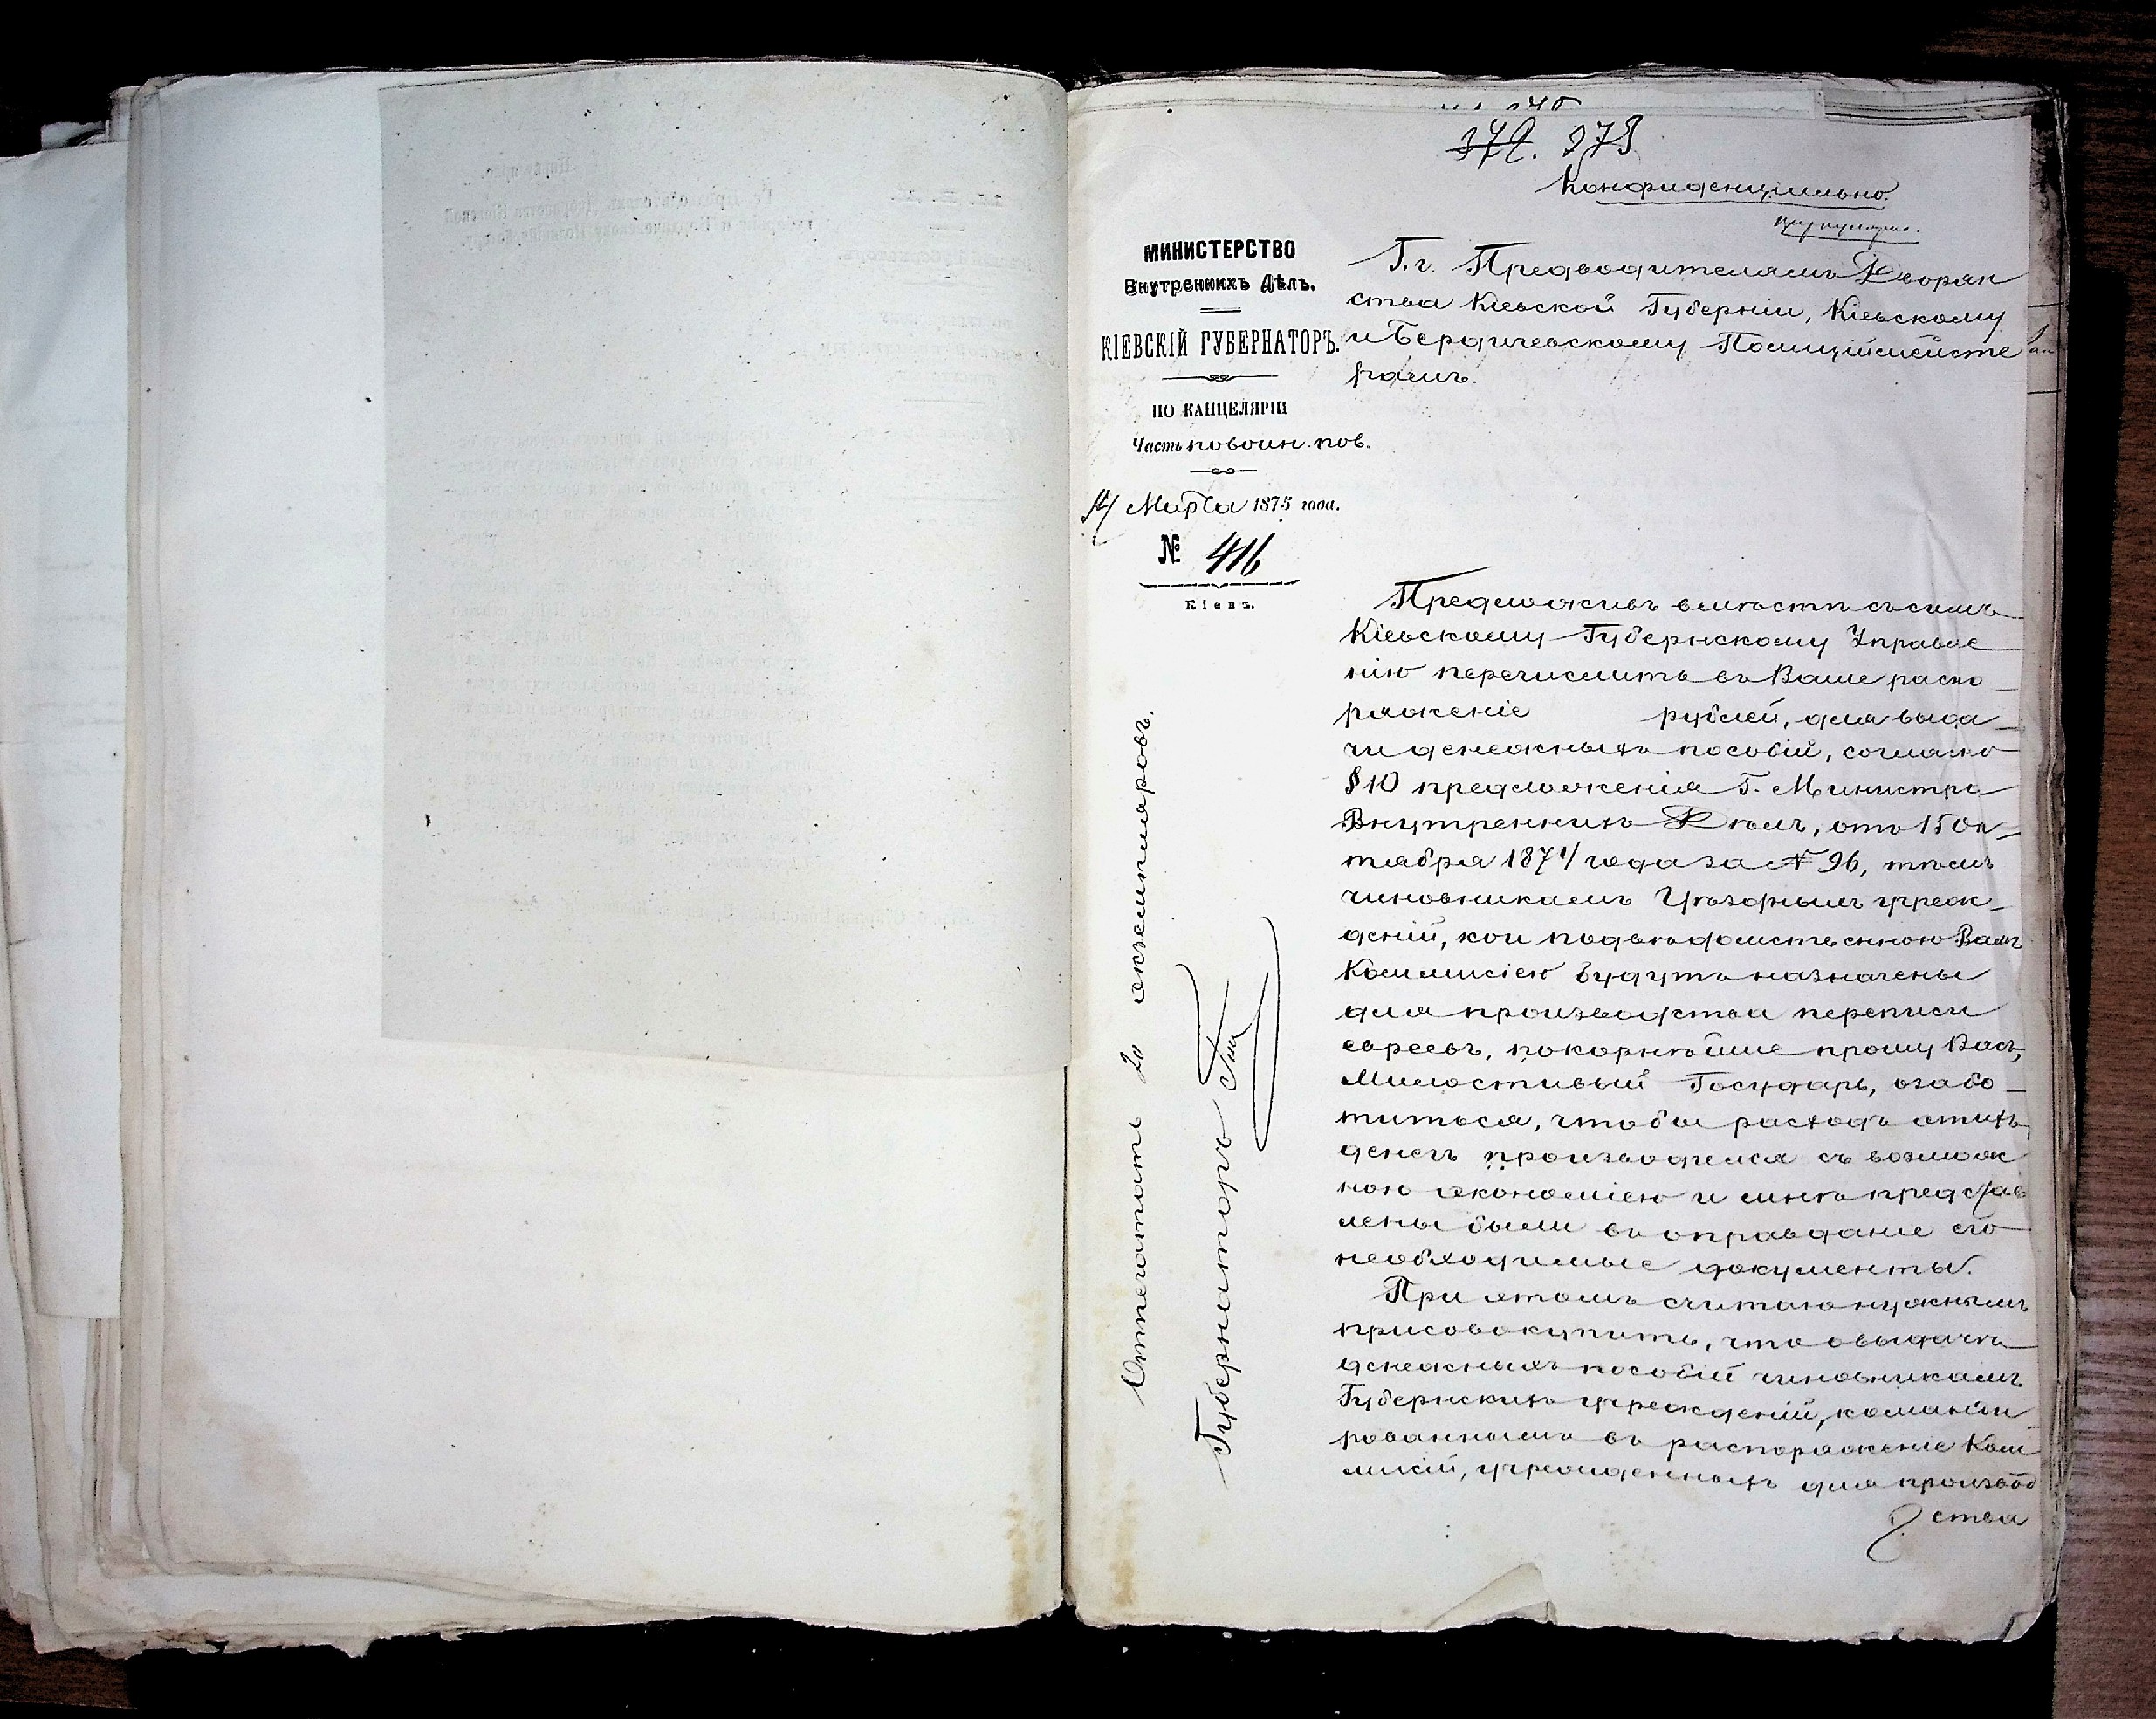 372. 273
Конфиденціально.
Циркулярно.
МИНИСТЕРСТВО
Внутреннихъ Дѣлъ.
КІЕВСКІЙ ГУБЕРНАТОРЪ.
ПО КАНЦЕЛЯРІИ
Часть по воин. пов.
14 Марта 1875 года.
№ 416
Кіевъ.
Г.г. Предводителямъ Дворян
ства Кіевской Губерніи, Кіевскому
и Бердичевскому Полиціймейсте
рамъ.
Предложивъ вмѣстѣ съ симъ
Кіевскому Губернскому Управле
нію перечислить въ Ваше распо
ряженіе рублей, для выда
чи денежныхъ пособій, согласно
§ 10 предложенія Г. Министра
Внутреннихъ Дѣлъ, отъ 15 Ок
тября 1874 года за № 96, тѣмъ
чиновникамъ Уѣздныхъ учреж
деній, кои подвѣдомственною Вамъ
Коммисіею будутъ назначены
для производства переписи
евреевъ, покорнѣйше прошу Васъ,
Милостивый Государь, озабо
титься, чтобы расходъ этихъ
денегъ производился съ возмож
ною экономіею и мнѣ представ
лены были въ оправданіе его
необходимые документы.
При этомъ считаю нужнымъ
присовокупить, что о выдачѣ
денежныхъ пособій чиновникамъ
Губернскихъ учрежденій, команди
рованнымъ въ распоряженіе Ком
мисій, учрежденныхъ для производ
ства
Отпечатать 20 экземпляровъ.
Губернаторъ